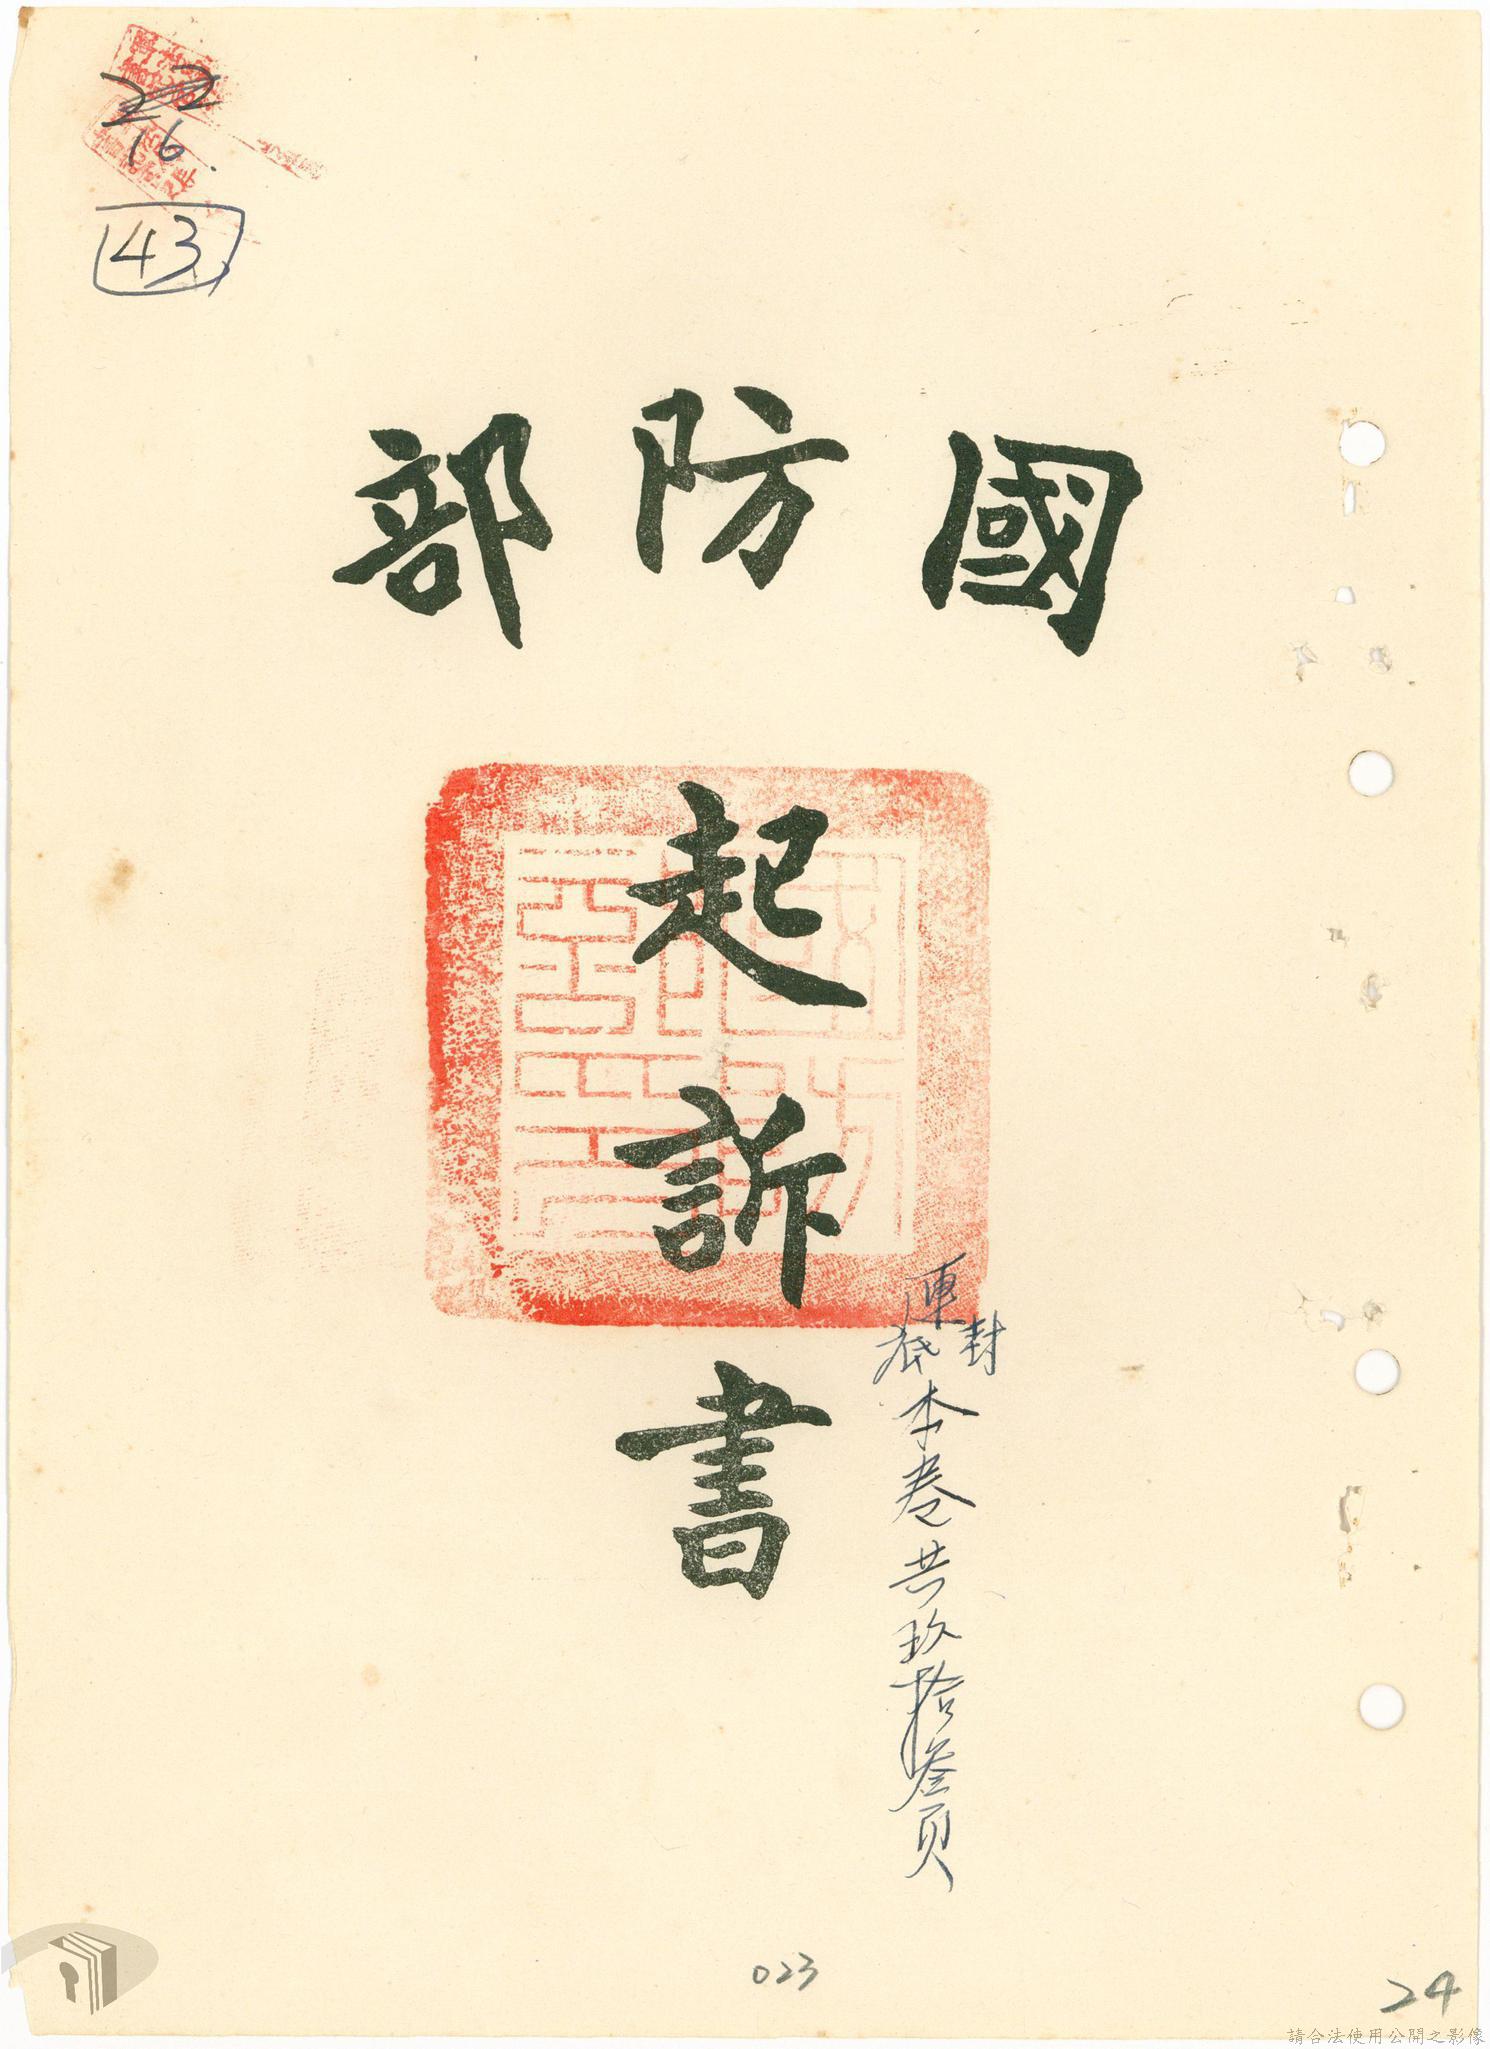 22
16.
43
國防部
起訴書
連封底本卷共玖拾叁頁
023
24
請合法使用公開之影像